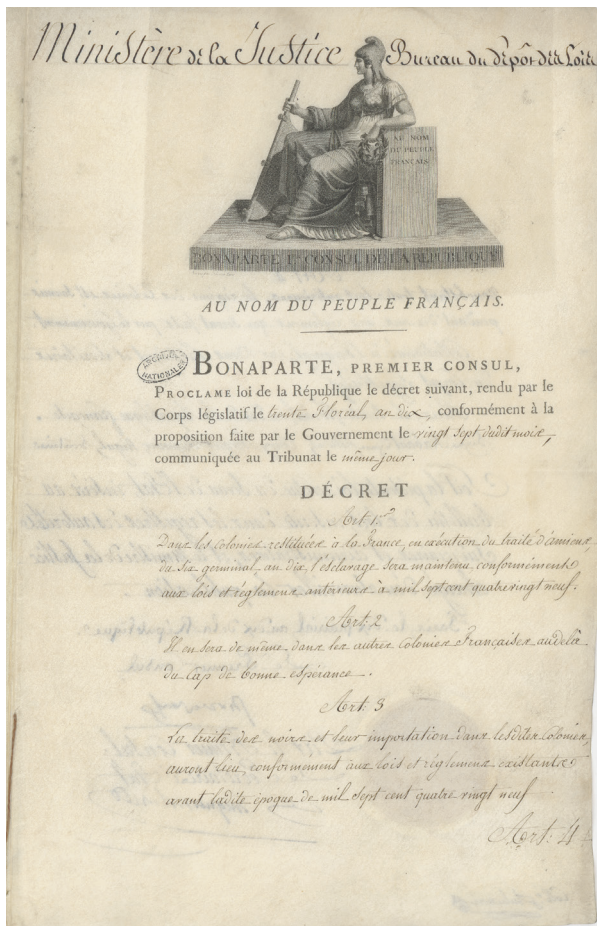 Ministère de la Justice Bureau du dépôt des Lois
AU NOM
DU PEUPLE
FRANÇAIS
BONAPARTE Ier CONSUL DE LA REPUBLIQUE
AU NOM DU PEUPLE FRANÇAIS.
ARCHIVES
NATIONALES
BONAPARTE, PREMIER CONSUL,
PROCLAME loi de la République le décret suivant, rendu par le
Corps législatif le trente Floréal, an dix, conformément à la
proposition faite par le Gouvernement le vingt sept dudit mois,
communiquée au Tribunat le même jour.
DÉCRET
Art. 1er
Dans les colonies restituées à la France, en exécution du traité d'amiens,
du six germinal, an dix, l'esclavage sera maintenu conformément
aux lois et réglemens antérieurs à mil sept cent quatre vingt neuf.
Art. 2
Il en sera de même dans les autres colonies Françaises au delà
du Cap de bonne espérance.
Art. 3
La traite des noirs et leur importation dans lesdites colonies,
auront lieu, conformément aux lois et réglemens existants
avant ladite époque de mil sept cent quatre vingt neuf
Art. 4